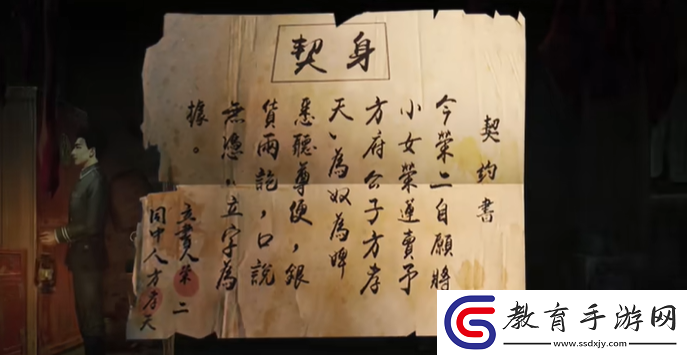 契身
契約書
今榮二自願將
小女榮蓮賣予
方府公子方孝
天，為奴為婢
悉聽尊便，銀
貨兩訖，口說
無憑，立字為
據。
立書人榮二
同中人方孝天
教育手游网
www.ssdxjy.com